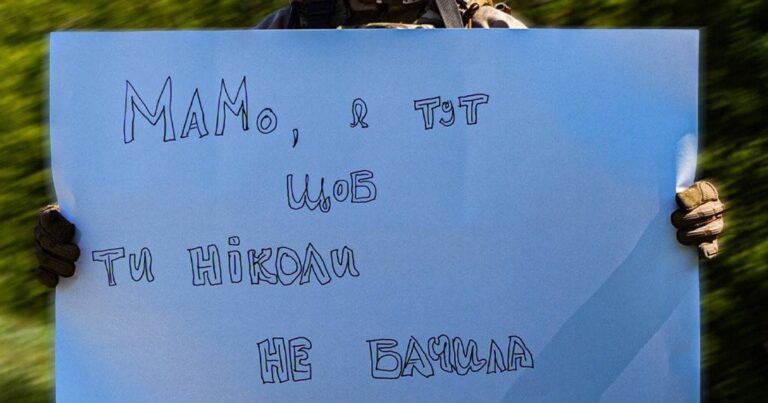 МАМО, я ТУТ
ЩОБ
ТИ НІКОЛИ
НЕ БАЧИЛА